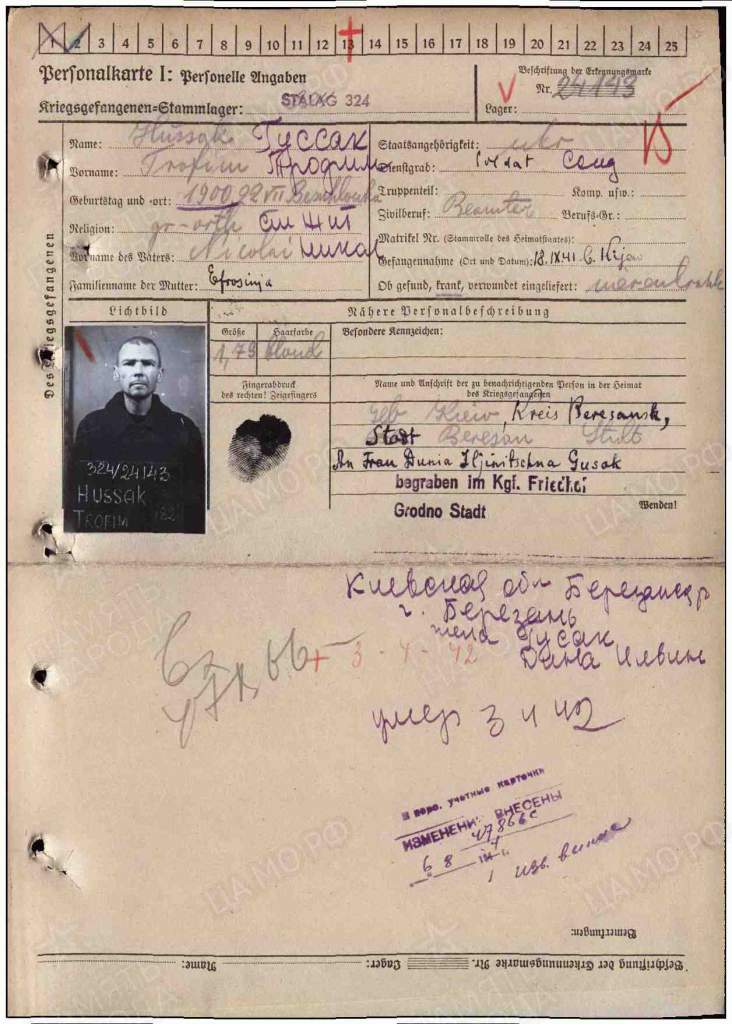 1 2 3 4 5 6 7 8 9 10 11 12 13 14 15 16 17 18 19 20 21 22 23 24 25
Personalkarte I: Personelle Angaben
Kriegsgefangenen-Stammlager: STALAG 324
Beschriftung der Erkennungsmarke
Nr. 24143
Lager:
Des Kriegsgefangenen
Name: Hussak Гуссак
Vorname: Trofim Трофим
Geburtstag und -ort: 1900
Religion: gr-orth
Vorname des Vaters: Nicolai Никол
Familienname der Mutter: Efrosinja
Staatsangehörigkeit: ukr
Dienstgrad: Soldat Солд
Truppenteil: Komp. usw.:
Zivilberuf: Beamter Berufs-Gr.:
Matrikel Nr. (Stammrolle des Heimatstaates):
Gefangennahme (Ort und Datum): 18.IX.41 b. Kijew
Ob gesund, krank, verwundet eingeliefert:
Lichtbild
Nähere Personalbeschreibung
Größe Haarfarbe Besondere Kennzeichen:
1,79 blond
Fingerabdruck
des rechten! Zeigefingers
Name und Anschrift der zu benachrichtigenden Person in der Heimat
des Kriegsgefangenen
Geb Kiew, Kreis Beresansk,
Stadt Beresan
An Frau Dunia Iljinitschna Gusak
begraben im Kgf. Friedhof
Grodno Stadt
Wenden!
324/24143
HUSSAK
TROFIM
Киевская обл Березанск р
г. Березань
жена Гусак
+ 3-4-42
умер 3 4 42
учетные карточки
ИЗМЕНЕНИ ВНЕСЕНЫ
Bemerkungen:
Name: Lager: Beschriftung der Erkennungsmarke Nr.
ЦАМО РФ
ПАМЯТЬ НАРОДА